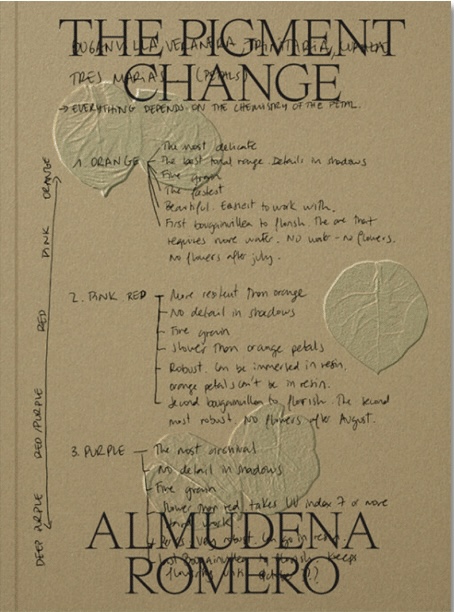 THE PIGMENT
CHANGE
BUGANVILLA, VERANERA, TRINITARIA,
TRES MARIAS (PETALS)
→ EVERYTHING DEPENDS ON THE CHEMISTRY OF THE PETAL.
1. ORANGE
The most delicate
The best tonal range. Details in shadows
Fine grain
The fastest
Beautiful. Easiest to work with.
First bougainvillea to florish. The one that
requires more water. NO water - NO flowers.
No flowers after july.
2. PINK RED
More resilient than orange
No detail in shadows
Fine grain
Slower than orange petals
Robust. Can be immersed in resin,
orange petals can't be in resin.
Second bougainvillea to florish. The second
most robust. NO flowers after August.
3. PURPLE
The most archival
No detail in shadows
Fine grain
Slower than red takes UV index 7 or more
very robust. Can go in
Bougainvillea to florish. keeps
flowering until
ORANGE
PINK
RED
RED/PURPLE
DEEP PURPLE
ALMUDENA
ROMERO